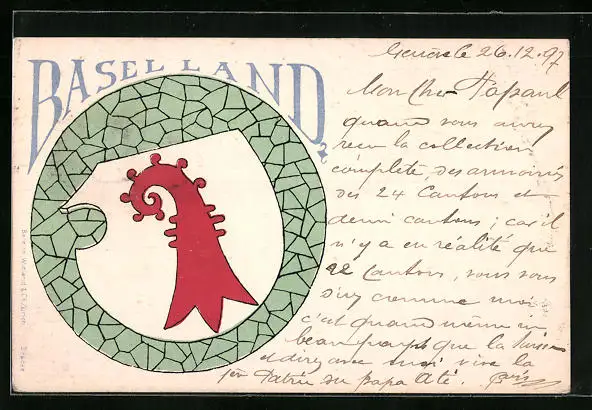 BASELLAND
Genève le 26.12.97
Mon cher Papaul
quand vous aurez
reçu la collection
complète, des armoiries
des 24 Cantons et
demi cantons ; car il
n'y a en réalité que
22 Cantons, vous
comme moi
c'est quand même un
beau pays que la Suisse
et avec moi vive la
1ère Patrie du papa